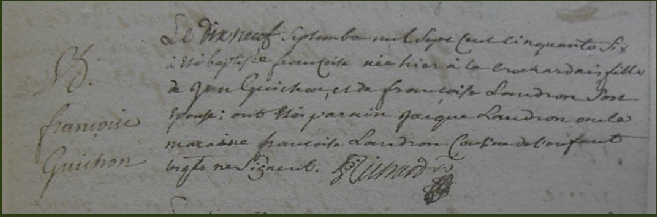 Le dix neuf Septembre mil Sept Cent Cinquante Six
a été baptisée françoise née hier à la crochardais fille
de Jean Guichon, et de françoise Landron Son
Epouse: ont été parain Jacque Landron oncle
maraine françoise Landron Cousine de l'enfant
lesquels ne Signent.
B.
françoise
Guichon